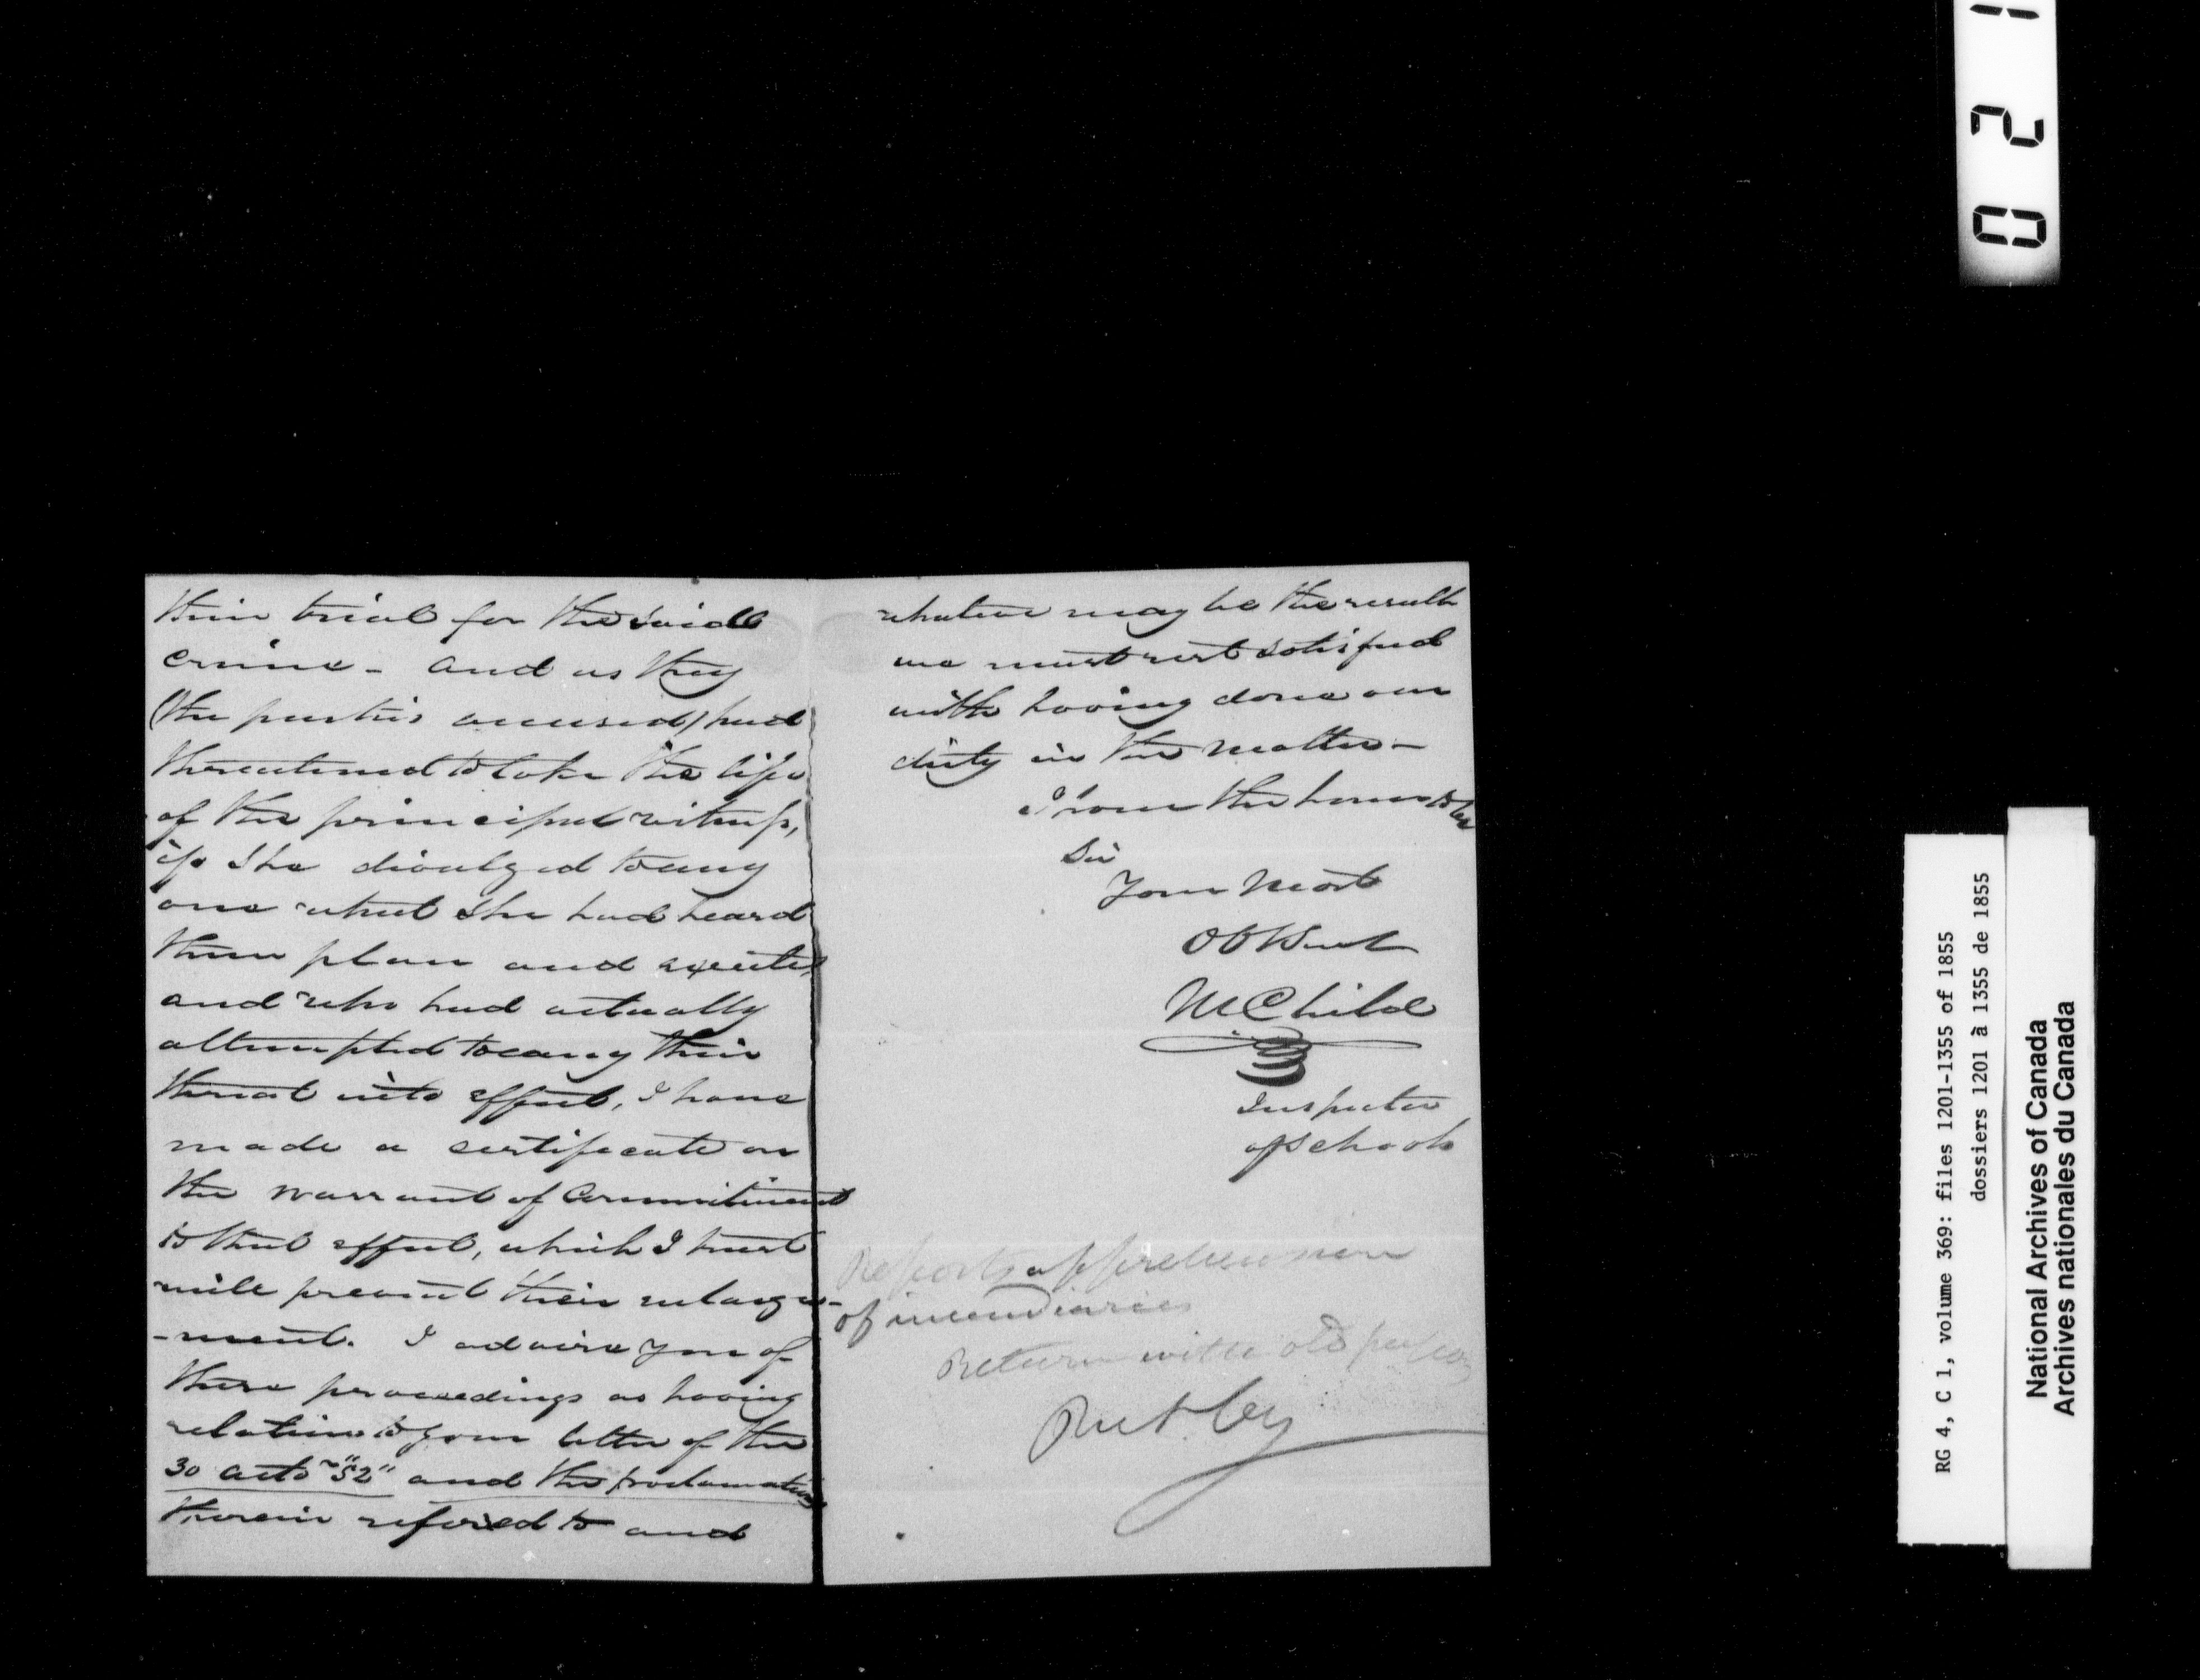 their trial for the said
crime - and as they
(the parties accused) had
threatened to take the life
of the principal witness,
if she divulged to any
one what she had heard
them plan and execute,
and who had actually
attempted to carry their
threat into effect, I have
made a certificate on
the warrant of Commitment
to that effect, which I trust
will prevent their enlarge-
-ment. I advise you of
these proceedings as having
relation to your letter of the
30 Octo "52" and the proclamation
therein refered to and
whatever may be the result
we must rest satisfied
with having done our
duty in the matter -
I have the honor to be
Sir
Your Most
Ob Servt
M Child
Inspector
of Schools
Reports apprehension
of incendiaries
Return with old papers
021
RG 4, C 1, volume 369: files 1201-1355 of 1855
dossiers 1201 à 1355 de 1855
National Archives of Canada
Archives nationales du Canada